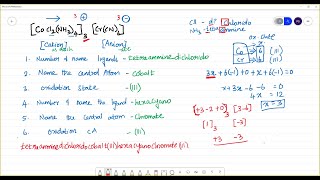 3 ⊕ 3 ⊖
[Co Cl₂(NH₃)₄]₃ [Cr(CN)₆]
[Cation] [Anion]
1. Number & name ligands - tetraamminedichlorido
2. Name the central Atom - cobalt
3. oxidation state - (III)
4. Number & name the ligand - hexacyano
5. Name the central atom - chromate
6. oxidation cA - (III)
tetraamminedichloridocobalt(III)hexacyanochromate(III)
Chlorido
NH₃ - ammine
ox-state
Co → 6 (III)
Cr → 6 (III)
3x+6(-1)+0+x+6(-1)=0
x+3x-6-6=0
4x = 12
x = 3
[+3-2+0]₃ [3-6]
[1]₃ [-3]
+3 -3